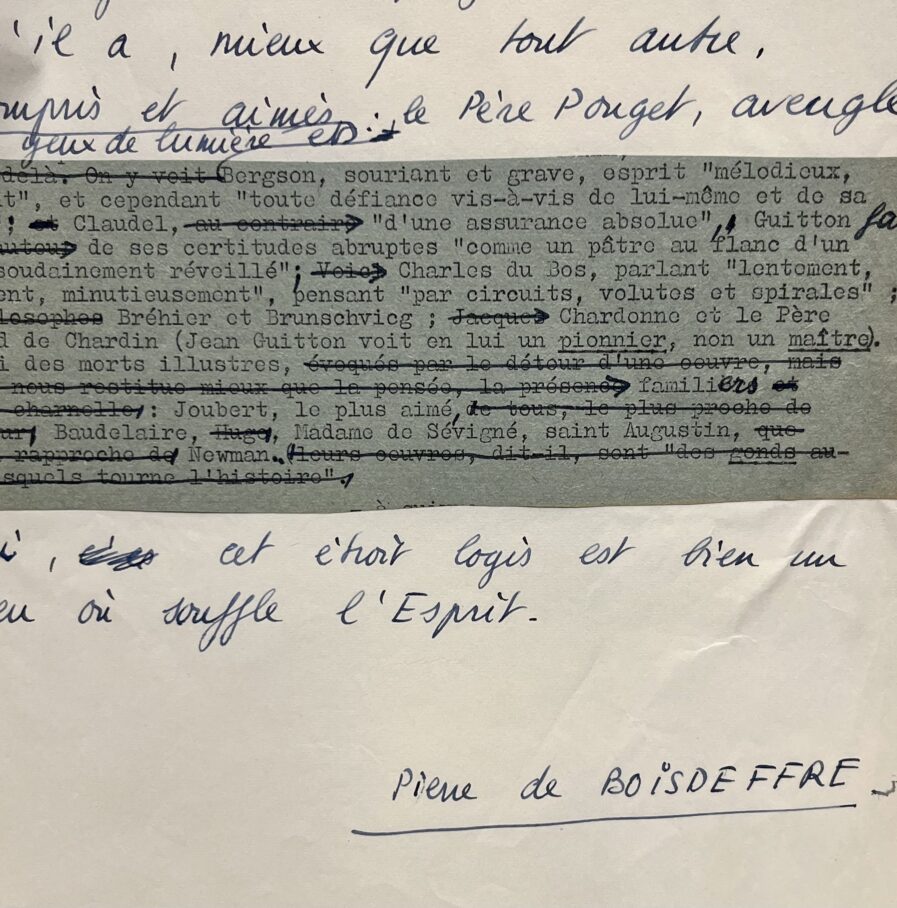 'il a, mieux que tout autre,
ompris et aimés : le Père Pouget, aveugle
yeux de lumière et
delà. On y voit Bergson, souriant et grave, esprit "mélodieux,
t", et cependant "toute défiance vis-à-vis de lui-même et de sa
; et Claudel, au contraire "d'une assurance absolue", Guitton fa
autour de ses certitudes abruptes "comme un pâtre au flanc d'un
soudainement réveillé"; Voici Charles du Bos, parlant "lentement,
ent, minutieusement", pensant "par circuits, volutes et spirales" ;
losophes Bréhier et Brunschvicg ; Jacques Chardonne et le Père
d de Chardin (Jean Guitton voit en lui un pionnier, non un maître).
i des morts illustres, évoqués par le détour d'une oeuvre, mais
nous restitue mieux que la pensée, la présence familiers et
charnelle, : Joubert, le plus aimé, de tous, le plus proche de
ur, Baudelaire, Hugo, Madame de Sévigné, saint Augustin, que
rapproche de Newman. (leurs oeuvres, dit-il, sont "des gonds au-
squels tourne l'histoire".
i, cet étroit logis est bien un
eu où souffle l'Esprit.
Pierre de BOISDEFFRE